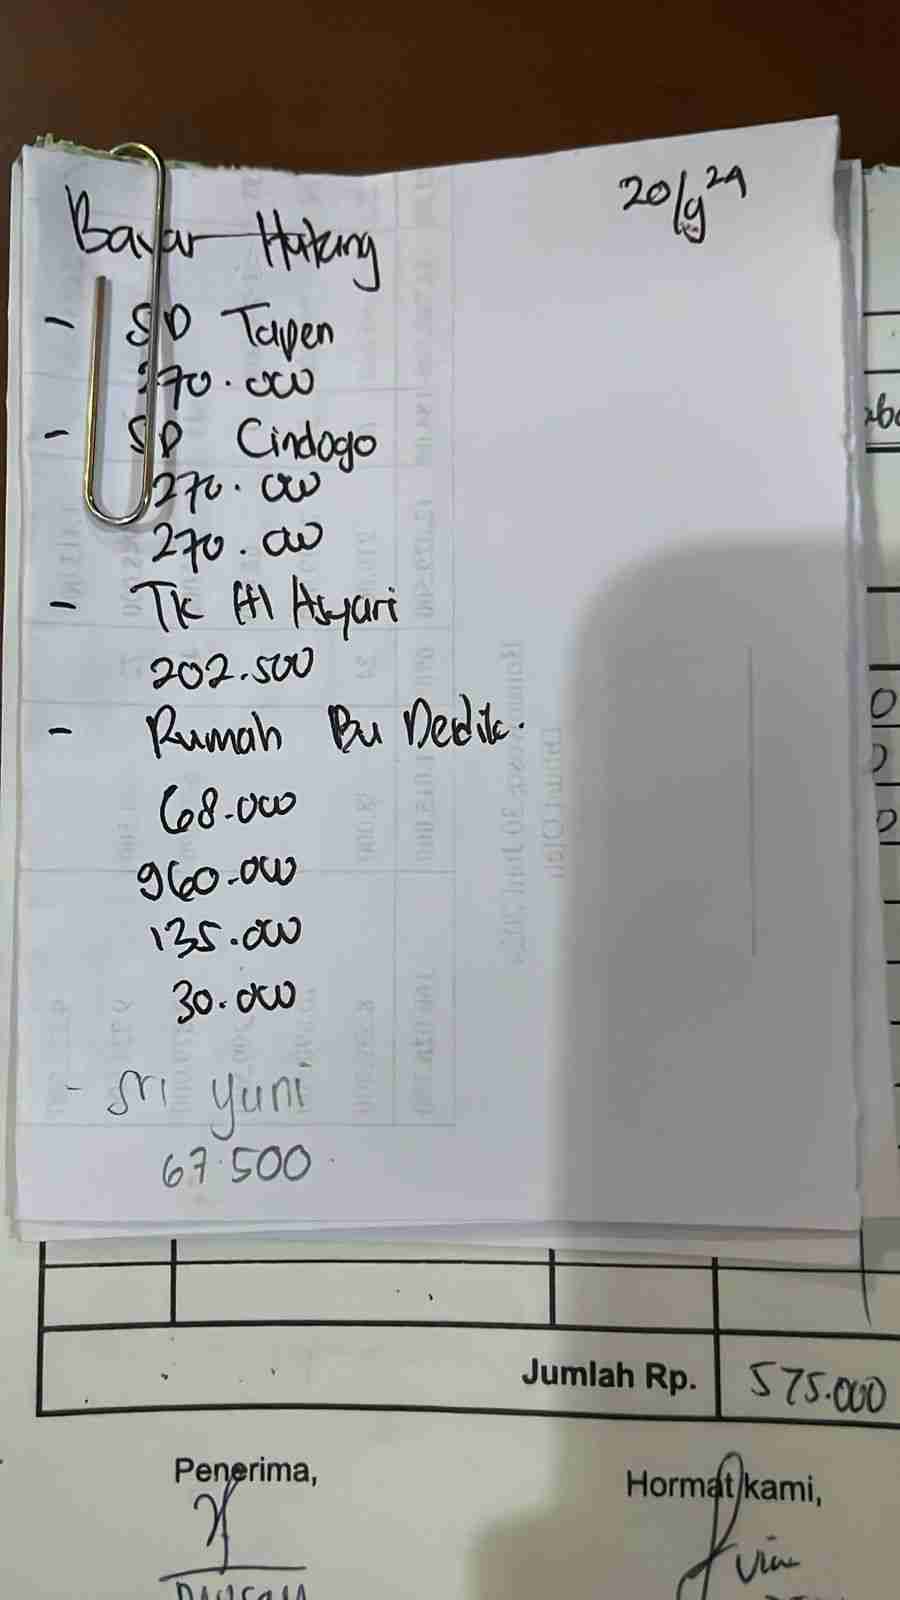 Bayar Hutang
20/9 24
- SD Tapen
270.000
- SD Cindogo
270.000
270.000
- TK Al Asyari
202.500
- Rumah Bu Dedik.
68.000
960.000
135.000
30.000
- Sri Yuni
67.500
Jumlah Rp. 575.000
Penerima,
Hormat kami,